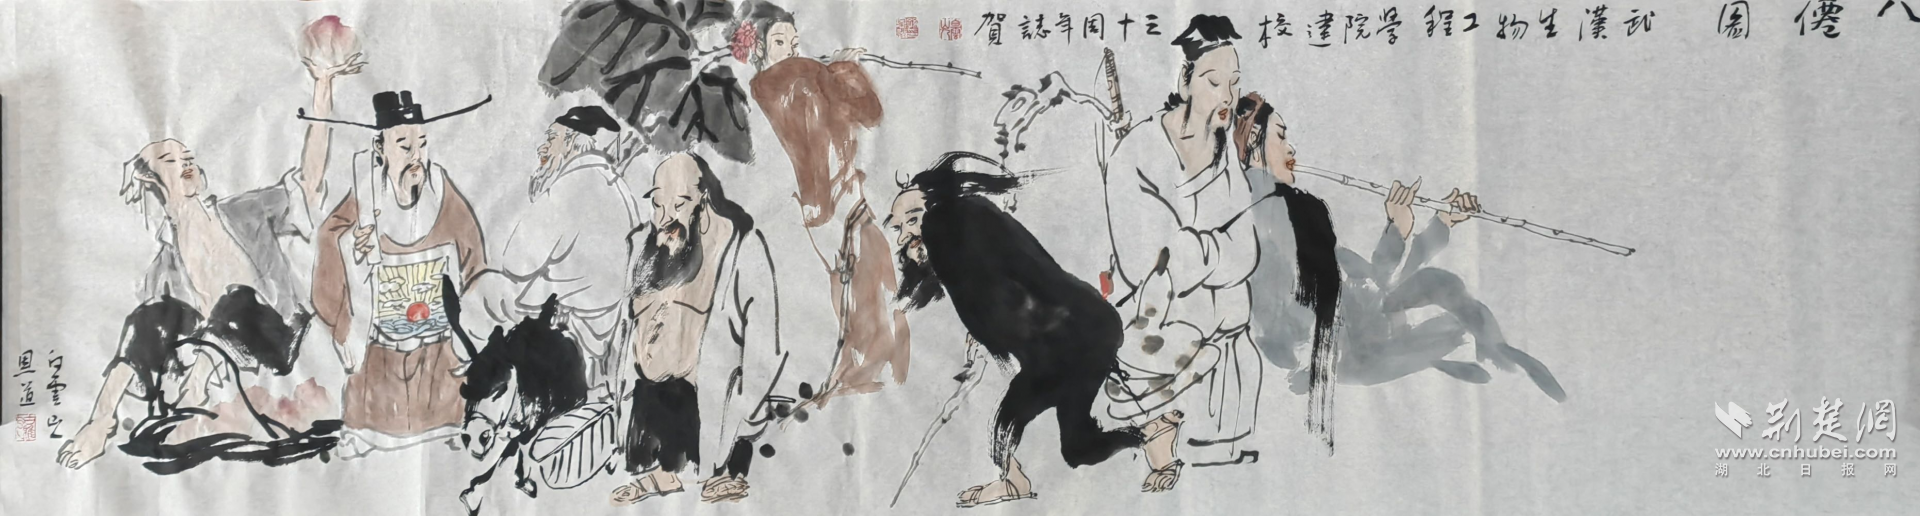 八僊圖 武漢生物工程學院建校三十周年誌賀
白雲山
恩道
荆楚網
www.cnhubei.com
湖北日报网